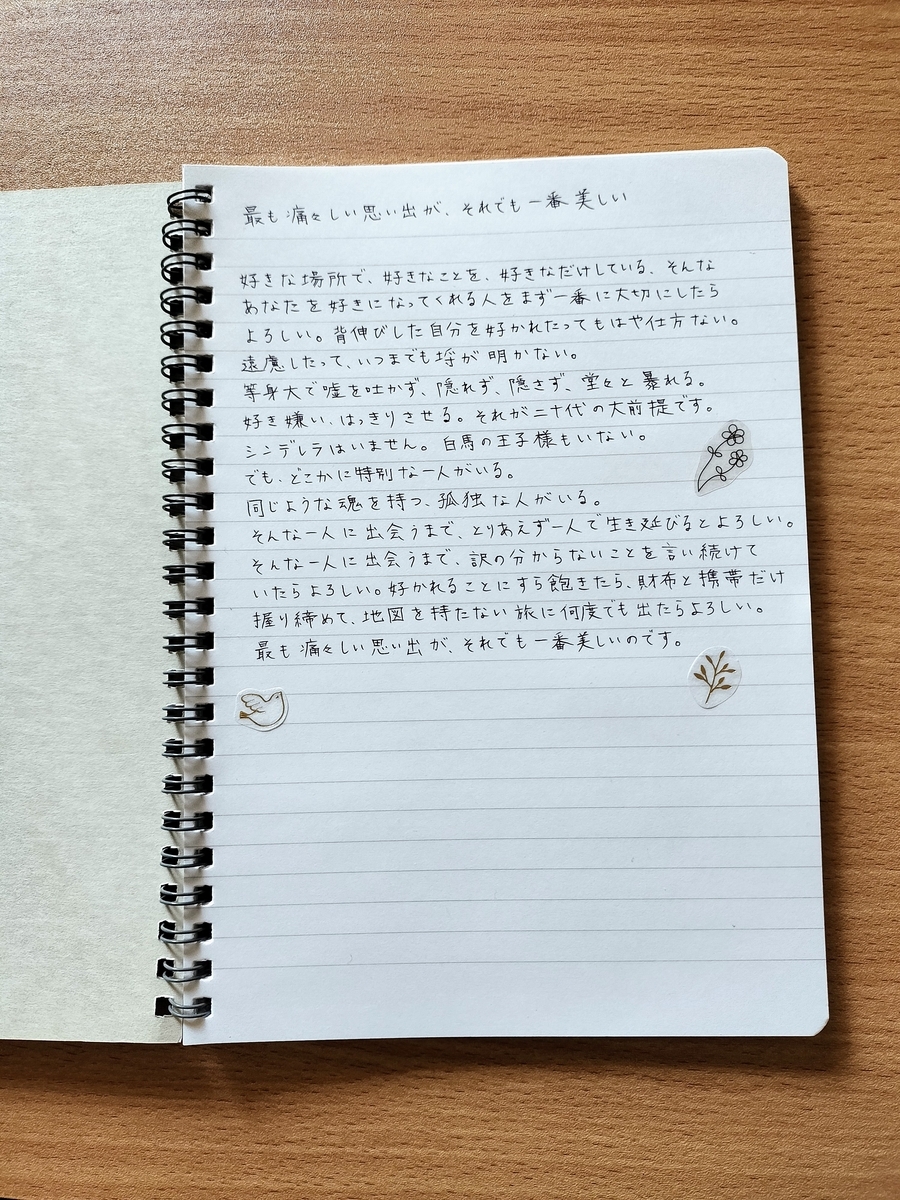 最も痛々しい思い出が、それでも一番美しい
好きな場所で、好きなことを、好きなだけしている、そんな
あなたを好きになってくれる人をまず一番に大切にしたら
よろしい。背伸びした自分を好かれたってもはや仕方ない。
遠慮したって、いつまでも埒が明かない。
等身大で嘘を吐かず、隠れず、隠さず、堂々と暴れる。
好き嫌い、はっきりさせる。それが二十代の大前提です。
シンデレラはいません。白馬の王子様もいない。
でも、どこかに特別な一人がいる。
同じような魂を持つ、孤独な人がいる。
そんな一人に出会うまで、とりあえず一人で生き延びるとよろしい。
そんな一人に出会うまで、訳の分からないことを言い続けて
いたらよろしい。好かれることにすら飽きたら、財布と携帯だけ
握り締めて、地図を持たない旅に何度でも出たらよろしい。
最も痛々しい思い出が、それでも一番美しいのです。